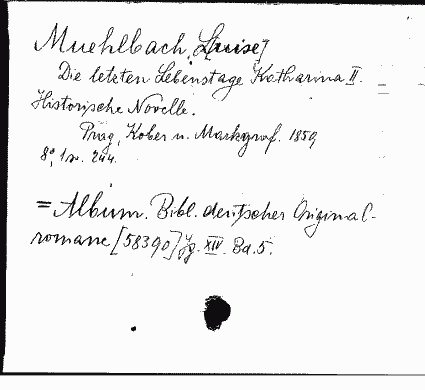 Muehlbach, L[uise]
Die letzten Lebenstage Katharina II.
Historische Novelle.
Prag, Kober u. Markgraf. 1859
8°, 244.
= Album. Bibl. deutscher Original-
romane [58390] Jg. XIV. Bd. 5.